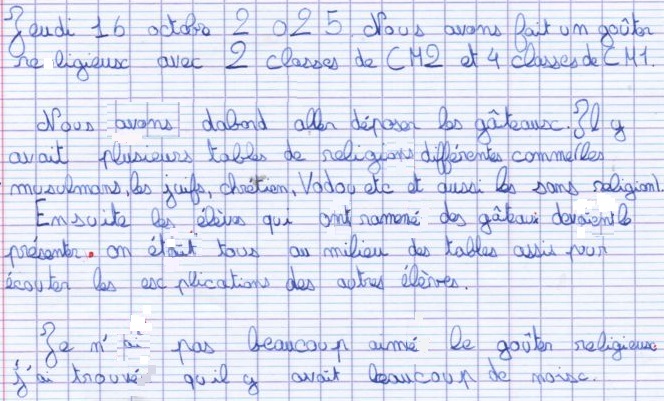 Jeudi 16 octobre 2025. Nous avons fait un goûter
religieux avec 2 classes de CM2 et 4 classes de CM1.
Nous avons dabord aller déposer les gâteausc. Il y
avait plusieurs tables de religions différentes comme les
musulmans, les juifs, chrétien, Vodou etc et aussi les sans religion).
Ensuite les élèves qui ont ramené des gâteaux devaient le
présenter. on était tous au milieu des tables assis pour
écouter les esc plications des autres élèves.
Je n'ai pas beaucoup aimé le goûter religieux
j'ai trouvé qu'il y avait beaucoup de noise.